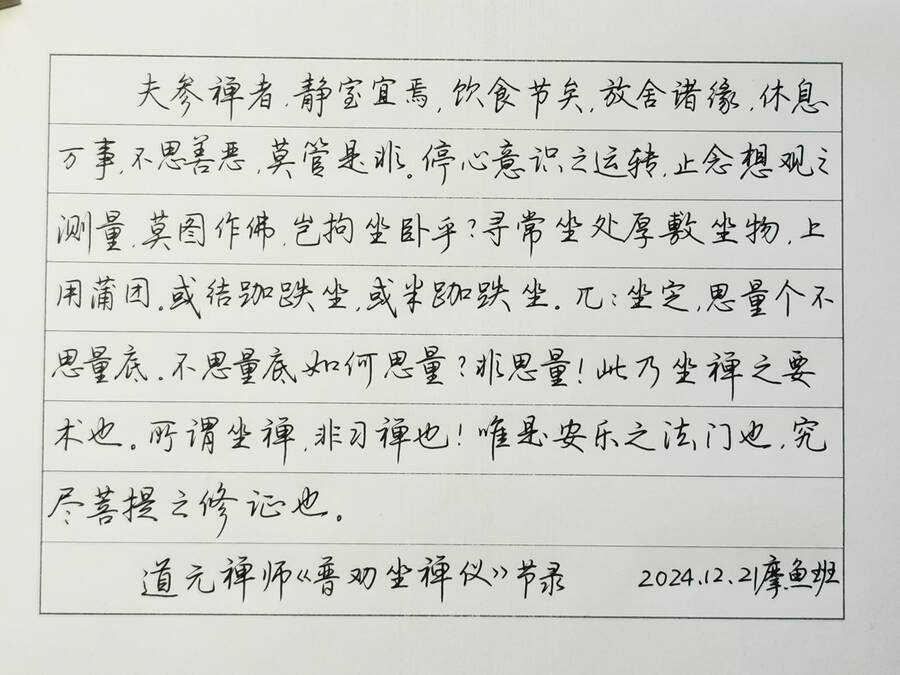 夫参禅者,静室宜焉,饮食节矣,放舍诸缘,休息
万事,不思善恶,莫管是非。停心意识之运转,止念想观之
测量,莫图作佛,岂拘坐卧乎?寻常坐处厚敷坐物,上
用蒲团。或结跏趺坐,或半跏趺坐。兀兀坐定,思量个不
思量底。不思量底如何思量?非思量!此乃坐禅之要
术也。所谓坐禅,非习禅也!唯是安乐之法门也,究
尽菩提之修证也。
道元禅师《普劝坐禅仪》节录 2024.12.21摩鱼班